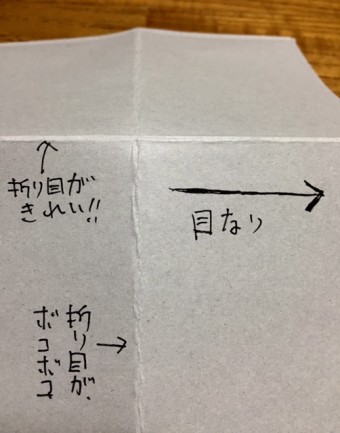 折り目が
きれい!!
目なり
折り目が、
ボコボコ